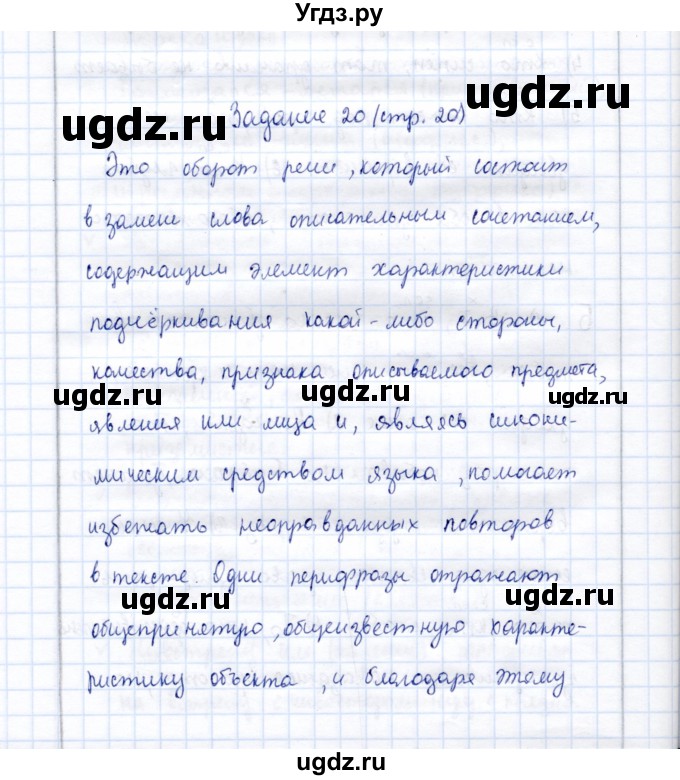 Угдз.ру
ugdz.ru ugdz.ru
Задание 20 (стр. 20)
Это оборот речи, который состоит
в замене слова описательным сочетанием,
ugdz.ru ugdz.ru ugdz.ru
содержащим элемент характеристики
подчёркивания какой-либо стороны,
качества, признака описываемого предмета,
ugdz.ru ugdz.ru ugdz.ru
явления или лица и, являясь синони-
мическим средством языка, помогает
избежать неоправданных повторов
в тексте. Одни перифразы отражают
ugdz.ru ugdz.ru
общепринятую, общеизвестную характе-
ристику объекта, и благодаря этому
ugdz.ru ugdz.ru